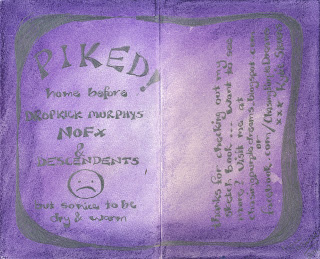 PIKED!
home before
DROPKICK MURPHYS
NOFX
&
DESCENDENTS
but so nice to be
dry & warm
thanks for checking out my
sketch book... want to see
more? visit me at
chasingpurpledreams.blogspot.com
or
facebook.com/ChasingPurpleDreams
xxx